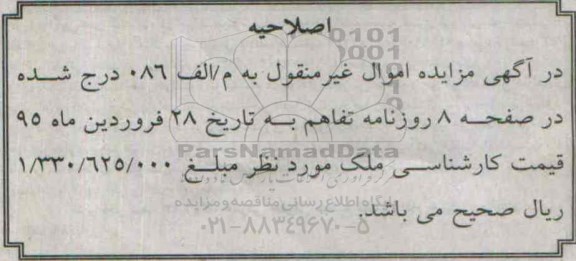 اصلاحیه
در آگهی مزایده اموال غیرمنقول به م/الف ۰۸۶ درج شده
در صفحه ۸ روزنامه تفاهم به تاریخ ۲۸ فروردین ماه ۹۵
قیمت کارشناسی ملک مورد نظر مبلغ ۱/۳۳۰/۶۲۵/۰۰۰
ParsNamadData
ریال صحیح می باشد.
پایگاه اطلاع رسانی مناقصه و مزایده
۰۲۱-۸۸۳۴۹۶۷۰-۵